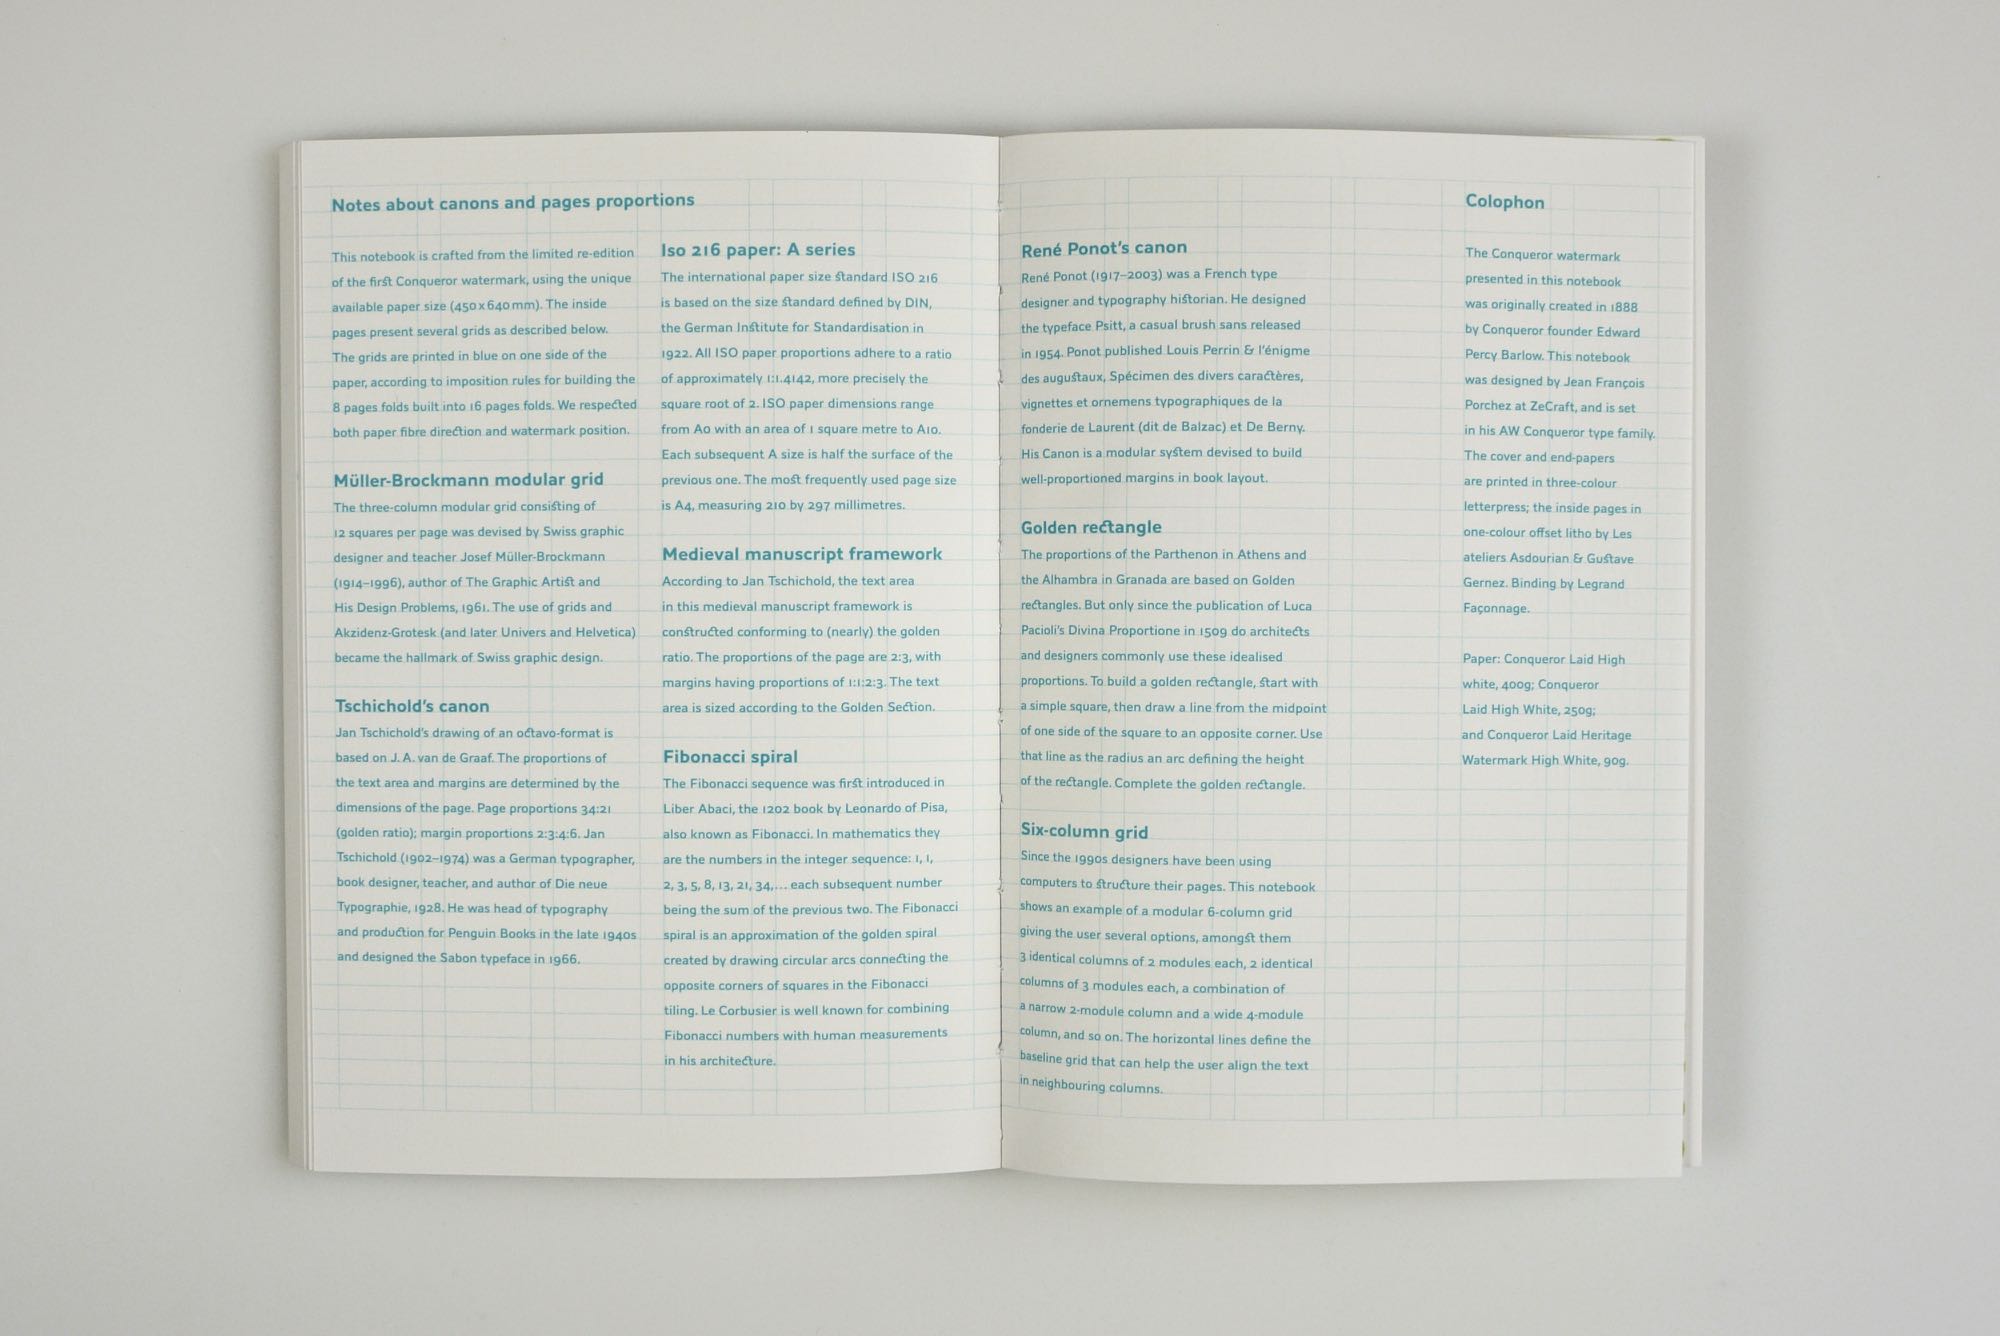 Notes about canons and pages proportions
This notebook is crafted from the limited re-edition
of the first Conqueror watermark, using the unique
available paper size (450 x 640 mm). The inside
pages present several grids as described below.
The grids are printed in blue on one side of the
paper, according to imposition rules for building the
8 pages folds built into 16 pages folds. We respected
both paper fibre direction and watermark position.
Müller-Brockmann modular grid
The three-column modular grid consisting of
12 squares per page was devised by Swiss graphic
designer and teacher Josef Müller-Brockmann
(1914–1996), author of The Graphic Artist and
His Design Problems, 1961. The use of grids and
Akzidenz-Grotesk (and later Univers and Helvetica)
became the hallmark of Swiss graphic design.
Tschichold's canon
Jan Tschichold's drawing of an octavo-format is
based on J. A. van de Graaf. The proportions of
the text area and margins are determined by the
dimensions of the page. Page proportions 34:21
(golden ratio); margin proportions 2:3:4:6. Jan
Tschichold (1902–1974) was a German typographer,
book designer, teacher, and author of Die neue
Typographie, 1928. He was head of typography
and production for Penguin Books in the late 1940s
and designed the Sabon typeface in 1966.
Iso 216 paper: A series
The international paper size standard ISO 216
is based on the size standard defined by DIN,
the German Institute for Standardisation in
1922. All ISO paper proportions adhere to a ratio
of approximately 1:1.4142, more precisely the
square root of 2. ISO paper dimensions range
from A0 with an area of 1 square metre to A10.
Each subsequent A size is half the surface of the
previous one. The most frequently used page size
is A4, measuring 210 by 297 millimetres.
Medieval manuscript framework
According to Jan Tschichold, the text area
in this medieval manuscript framework is
constructed conforming to (nearly) the golden
ratio. The proportions of the page are 2:3, with
margins having proportions of 1:1:2:3. The text
area is sized according to the Golden Section.
Fibonacci spiral
The Fibonacci sequence was first introduced in
Liber Abaci, the 1202 book by Leonardo of Pisa,
also known as Fibonacci. In mathematics they
are the numbers in the integer sequence: 1, 1,
2, 3, 5, 8, 13, 21, 34,… each subsequent number
being the sum of the previous two. The Fibonacci
spiral is an approximation of the golden spiral
created by drawing circular arcs connecting the
opposite corners of squares in the Fibonacci
tiling. Le Corbusier is well known for combining
Fibonacci numbers with human measurements
in his architecture.
René Ponot's canon
René Ponot (1917–2003) was a French type
designer and typography historian. He designed
the typeface Psitt, a casual brush sans released
in 1954. Ponot published Louis Perrin & l'énigme
des augustaux, Spécimen des divers caractères,
vignettes et ornemens typographiques de la
fonderie de Laurent (dit de Balzac) et De Berny.
His Canon is a modular system devised to build
well-proportioned margins in book layout.
Golden rectangle
The proportions of the Parthenon in Athens and
the Alhambra in Granada are based on Golden
rectangles. But only since the publication of Luca
Pacioli's Divina Proportione in 1509 do architects
and designers commonly use these idealised
proportions. To build a golden rectangle, start with
a simple square, then draw a line from the midpoint
of one side of the square to an opposite corner. Use
that line as the radius an arc defining the height
of the rectangle. Complete the golden rectangle.
Six-column grid
Since the 1990s designers have been using
computers to structure their pages. This notebook
shows an example of a modular 6-column grid
giving the user several options, amongst them
3 identical columns of 2 modules each, 2 identical
columns of 3 modules each, a combination of
a narrow 2-module column and a wide 4-module
column, and so on. The horizontal lines define the
baseline grid that can help the user align the text
in neighbouring columns.
Colophon
The Conqueror watermark
presented in this notebook
was originally created in 1888
by Conqueror founder Edward
Percy Barlow. This notebook
was designed by Jean François
Porchez at ZeCraft, and is set
in his AW Conqueror type family.
The cover and end-papers
are printed in three-colour
letterpress; the inside pages in
one-colour offset litho by Les
ateliers Asdourian & Gustave
Gernez. Binding by Legrand
Façonnage.
Paper: Conqueror Laid High
white, 400g; Conqueror
Laid High White, 250g;
and Conqueror Laid Heritage
Watermark High White, 90g.